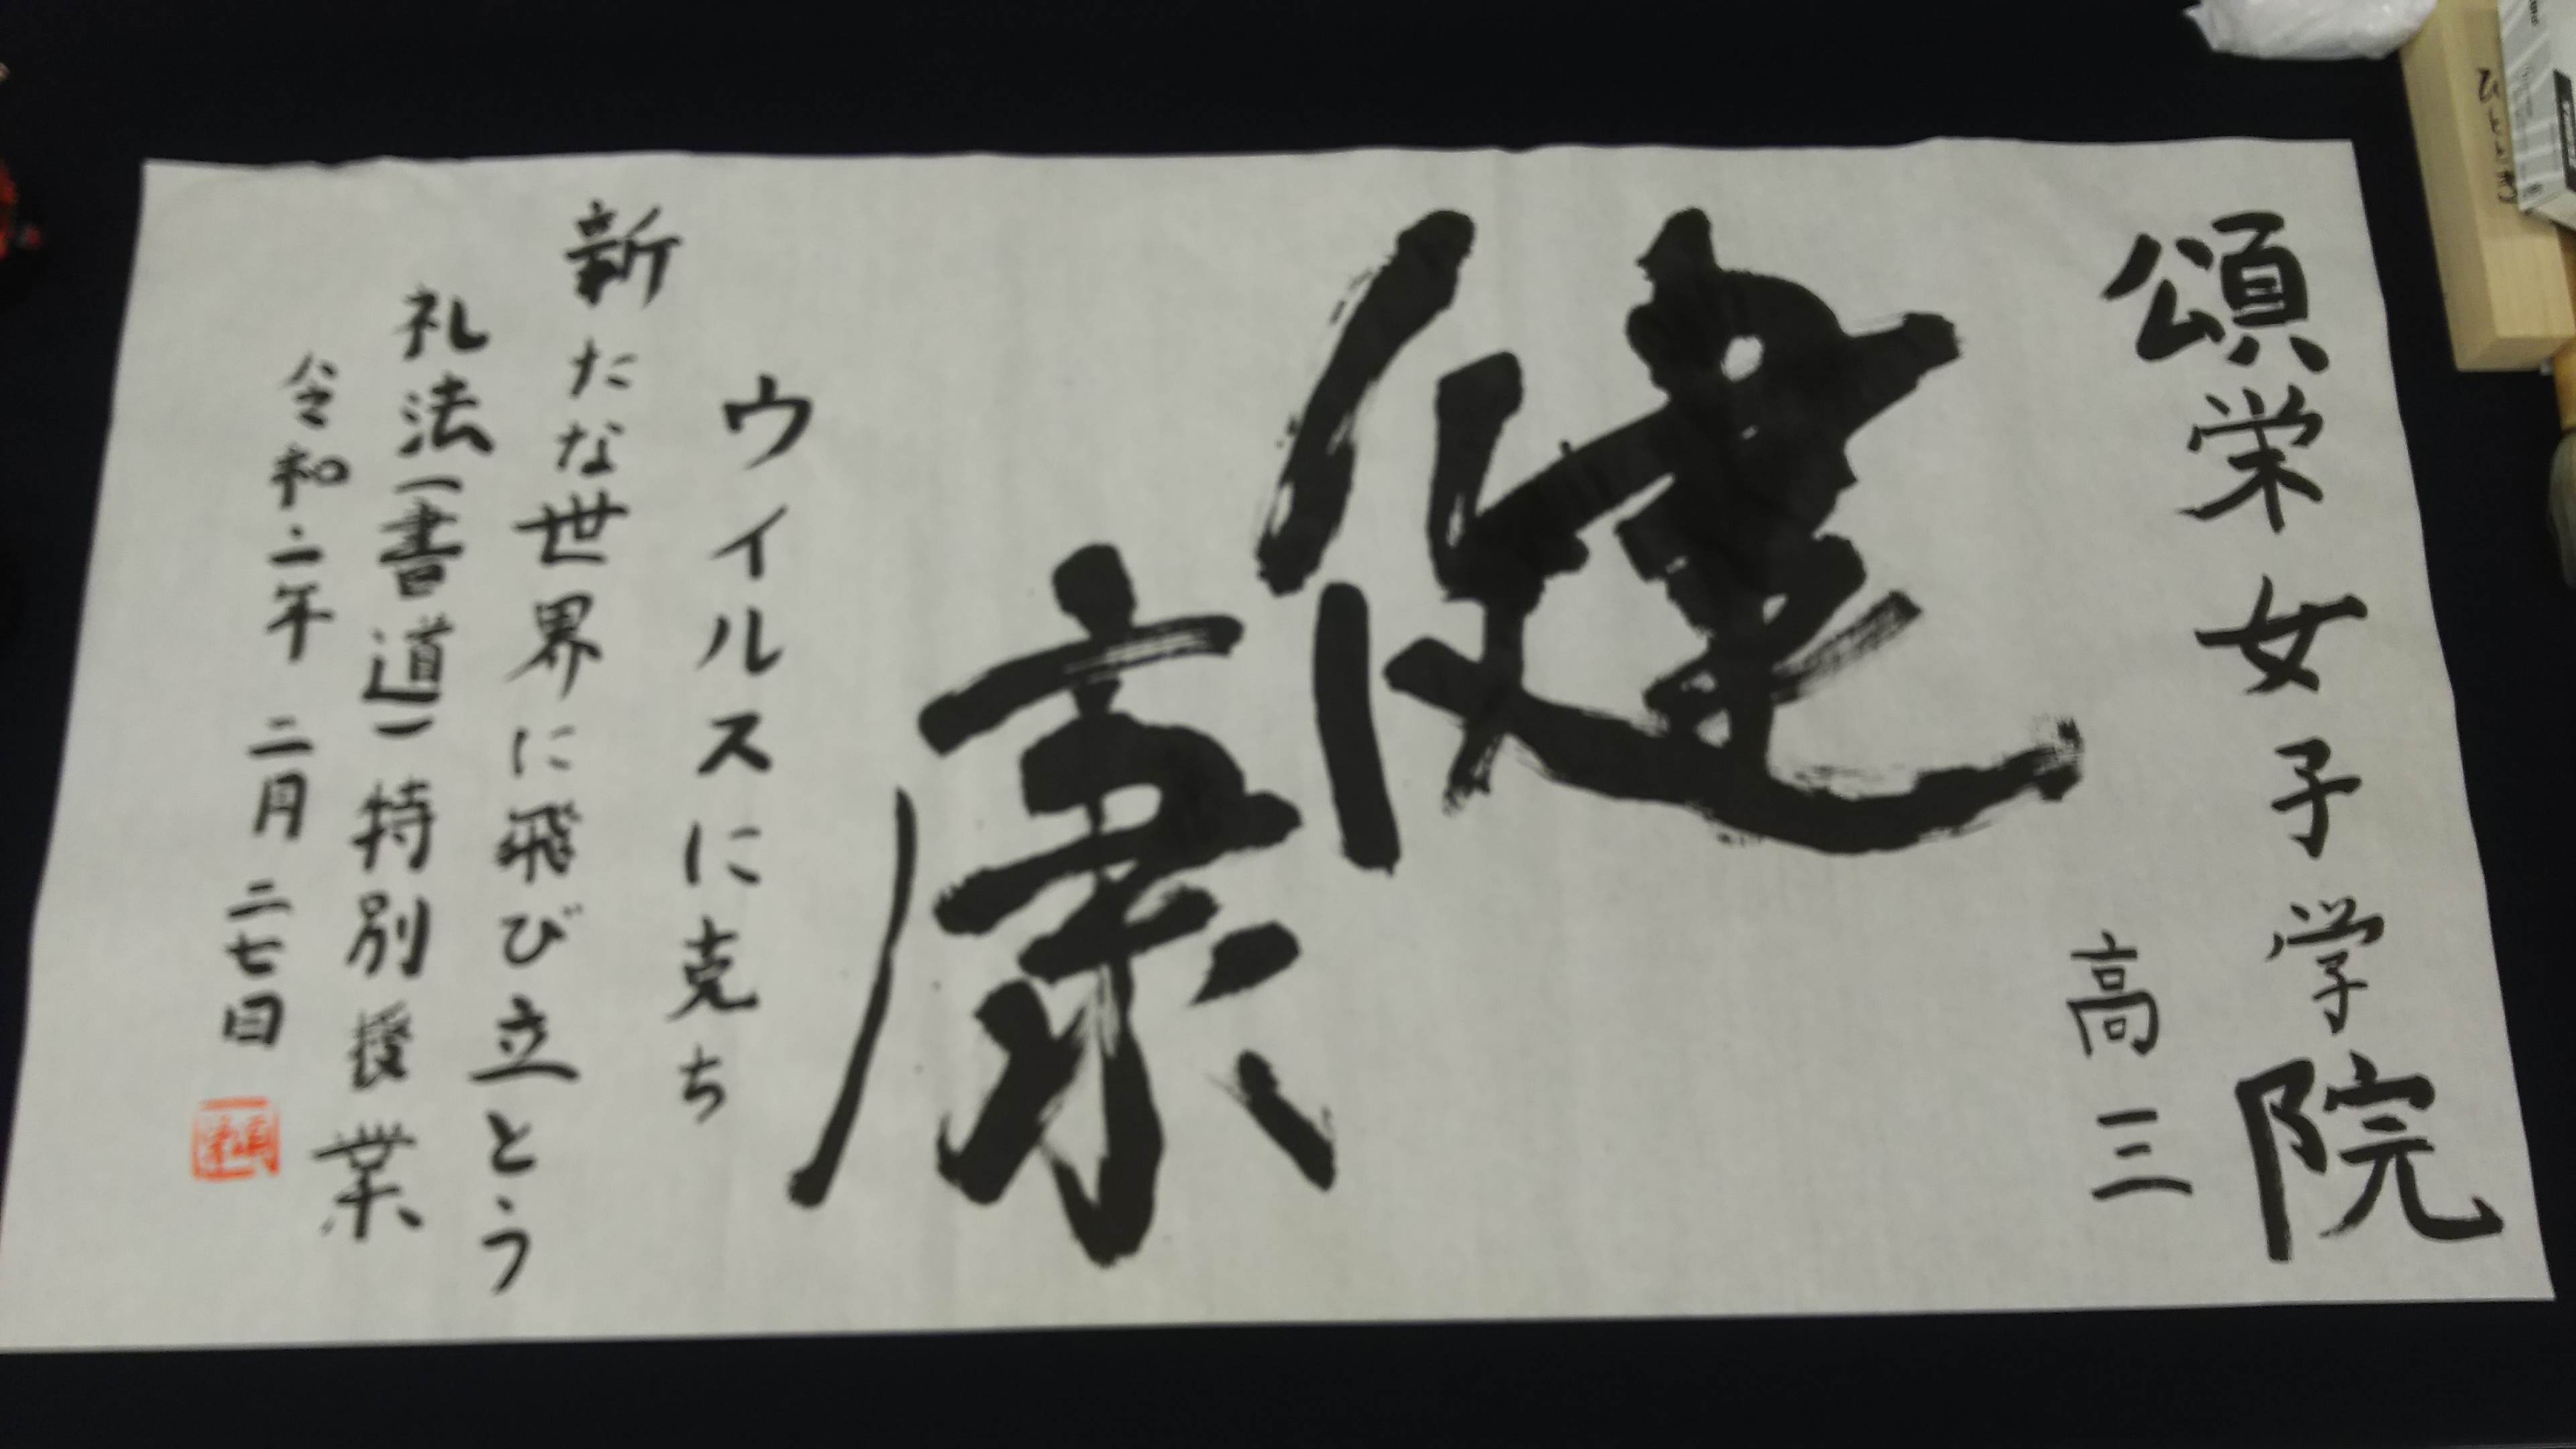 頌栄女子学院
高三
健康
ウイルスに克ち
新たな世界に飛び立とう
礼法(書道)特別授業
令和二年 二月二七日
ひととき